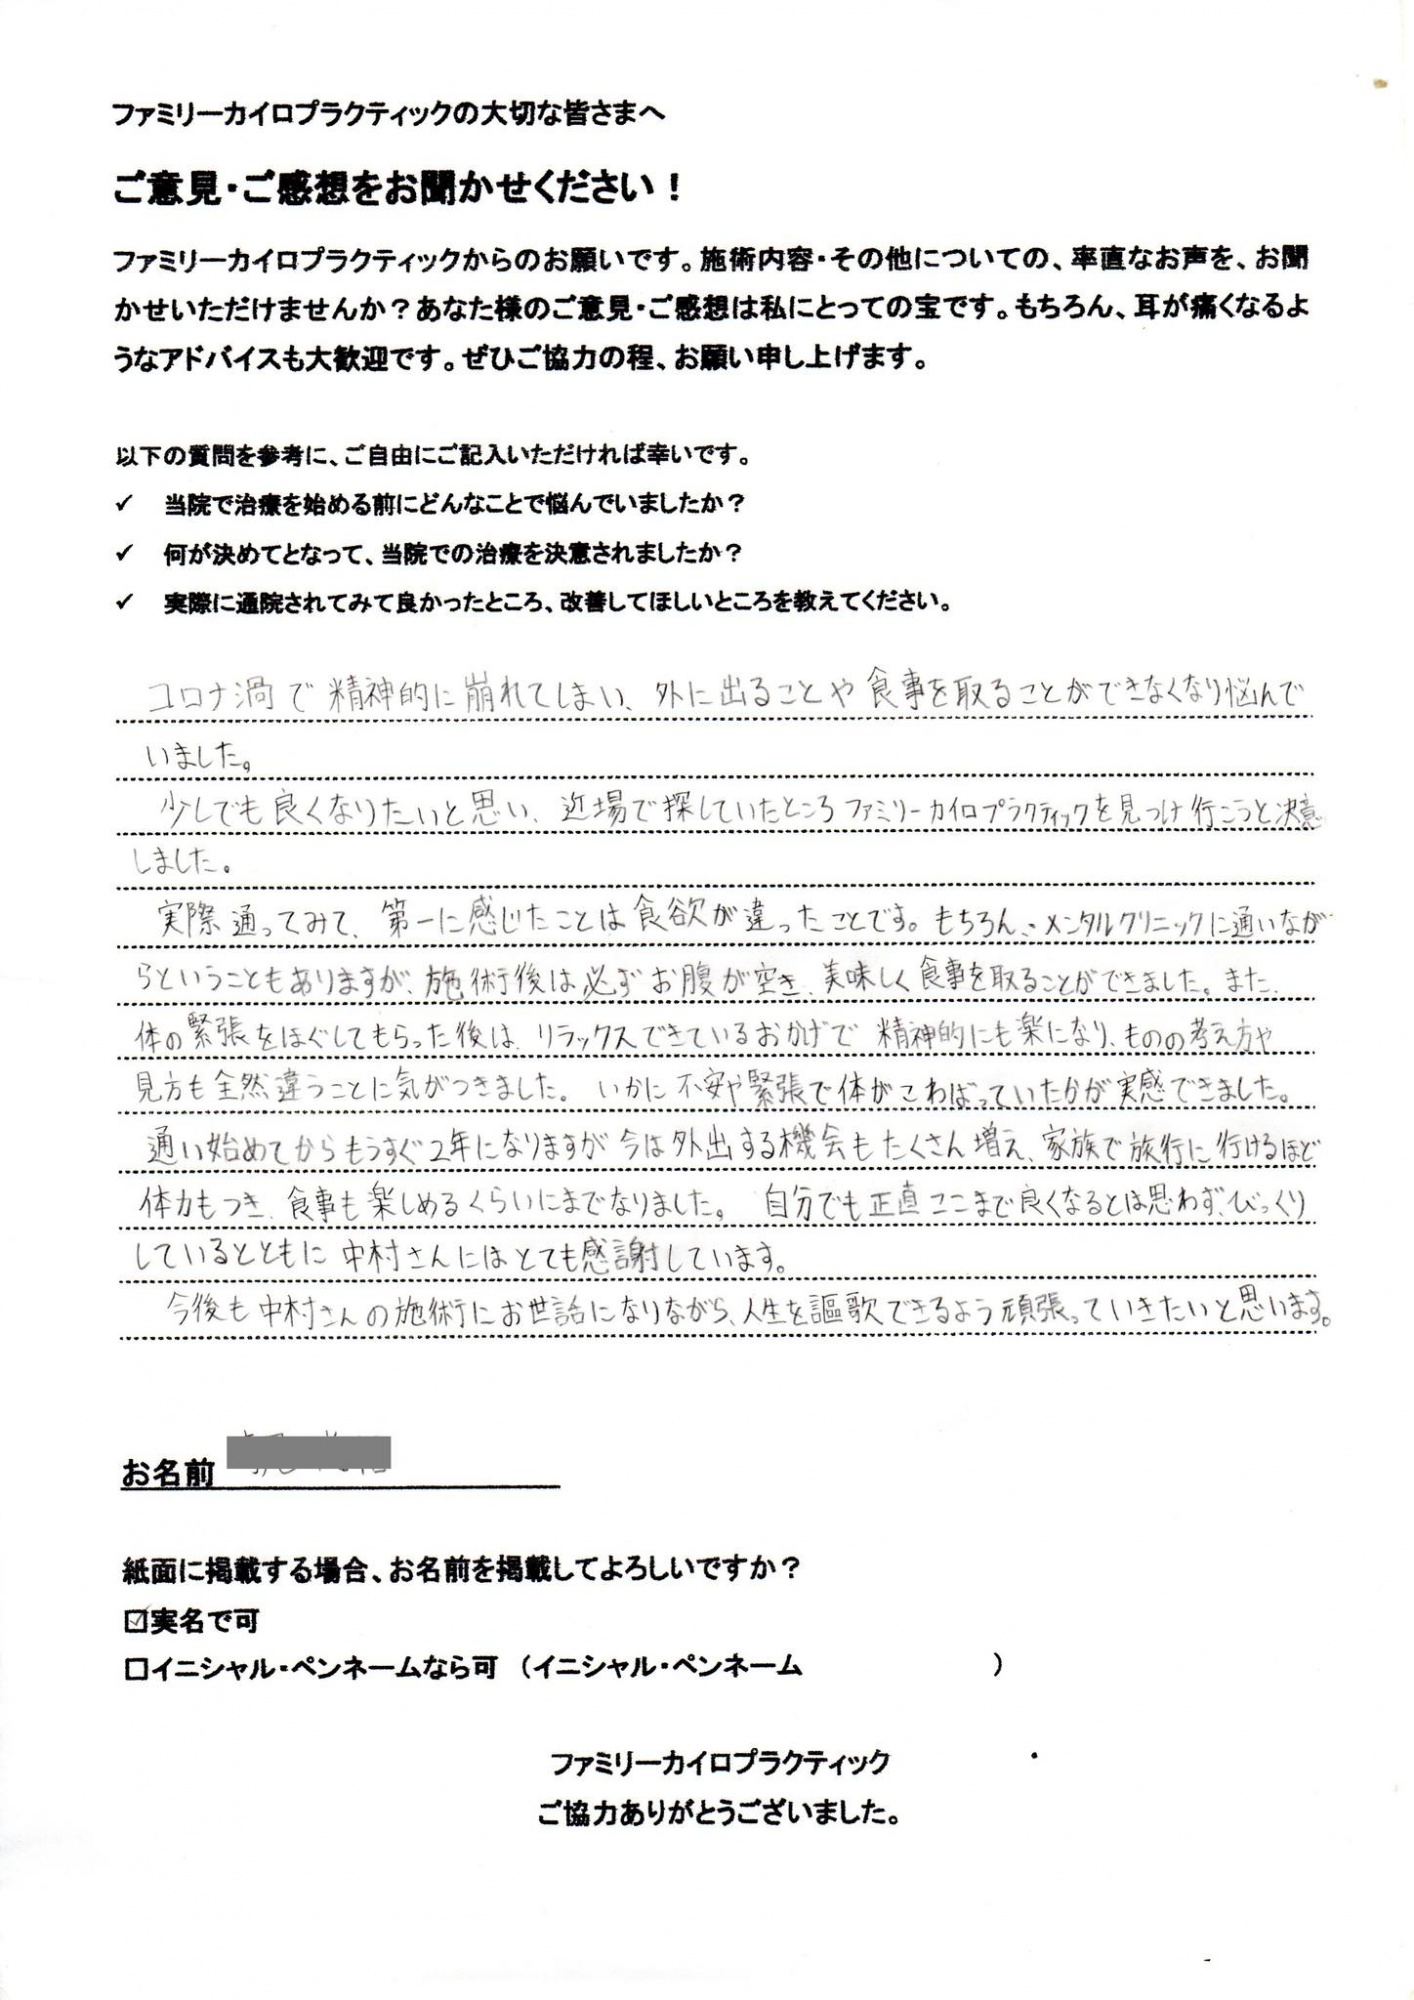 ファミリーカイロプラクティックの大切な皆さまへ
ご意見・ご感想をお聞かせください！
ファミリーカイロプラクティックからのお願いです。施術内容・その他についての、率直なお声を、お聞
かせいただけませんか？あなた様のご意見・ご感想は私にとっての宝です。もちろん、耳が痛くなるよ
うなアドバイスも大歓迎です。ぜひご協力の程、お願い申し上げます。
以下の質問を参考に、ご自由にご記入いただければ幸いです。
✓ 当院で治療を始める前にどんなことで悩んでいましたか？
✓ 何が決めてとなって、当院での治療を決意されましたか？
✓ 実際に通院されてみて良かったところ、改善してほしいところを教えてください。
コロナ渦で精神的に崩れてしまい、外に出ることや食事を取ることができなくなり悩んで
いました。
少しでも良くなりたいと思い、近場で探していたところファミリーカイロプラクティックを見つけ行こうと決意
しました。
実際通ってみて、第一に感じたことは食欲が違ったことです。もちろん、メンタルクリニックに通いなが
らということもありますが、施術後は必ずお腹が空き、美味しく食事を取ることができました。また、
体の緊張をほぐしてもらった後は、リラックスできているおかげで精神的にも楽になり、ものの考え方や
見方も全然違うことに気がつきました。いかに不安や緊張で体がこわばっていたかが実感できました。
通い始めてからもうすぐ2年になりますが今は外出する機会もたくさん増え、家族で旅行に行けるほど
体力もつき、食事も楽しめるくらいにまでなりました。 自分でも正直ここまで良くなるとは思わず、びっくり
しているとともに中村さんにはとても感謝しています。
今後も中村さんの施術にお世話になりながら、人生を謳歌できるよう頑張っていきたいと思います。
お名前
紙面に掲載する場合、お名前を掲載してよろしいですか？
☑実名で可
□イニシャル・ペンネームなら可 （イニシャル・ペンネーム ）
ファミリーカイロプラクティック
ご協力ありがとうございました。